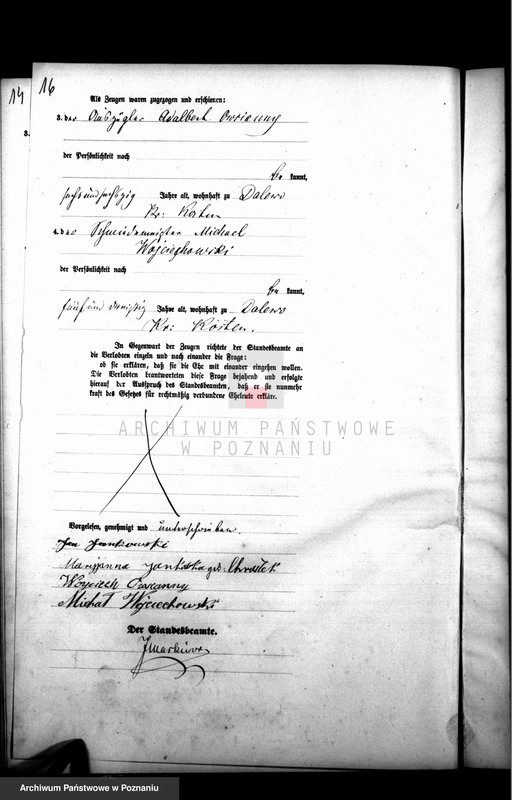 14
16
Als Zeugen waren zugezogen und erschienen:
3. der Auszügler Adalbert Owsianny
3.
der Persönlichkeit nach
be kannt,
sechsundsechszig Jahre alt, wohnhaft zu Dalewo
Kr: Kosten
4. der Schmiedemeister Michael
Wojciechowski
der Persönlichkeit nach
be kannt,
fünf und dreissig Jahre alt, wohnhaft zu Dalewo
Kr: Kosten.
In Gegenwart der Zeugen richtete der Standesbeamte an
die Verlobten einzeln und nach einander die Frage:
ob sie erklären, daß sie die Ehe mit einander eingehen wollen.
Die Verlobten beantworteten diese Frage bejahend und erfolgte
hierauf der Ausspruch des Standesbeamten, daß er sie nunmehr
kraft des Gesetzes für rechtmäßig verbundene Eheleute erkläre.
ARCHIWUM PAŃSTWOWE
W POZNANIU
Vorgelesen, genehmigt und unterschrieben.
Jan Jankowski
Maryjanna geb.
Wojciech Owsianny
Michał Wojciechowski
Der Standesbeamte.
Archiwum Państwowe w Poznaniu